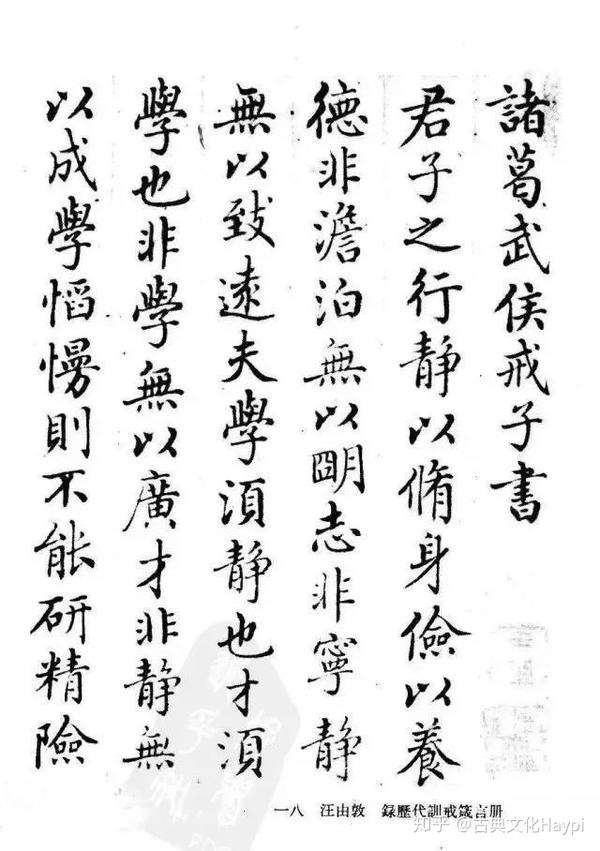 諸葛武侯戒子書
君子之行静以脩身儉以養
德非澹泊無以朙志非寧静
無以致遠夫學須静也才須
學也非學無以廣才非静無
以成學慆慢則不能研精險
一八 汪由敦 録歷代訓戒箴言册
知乎 @古典文化Haypi